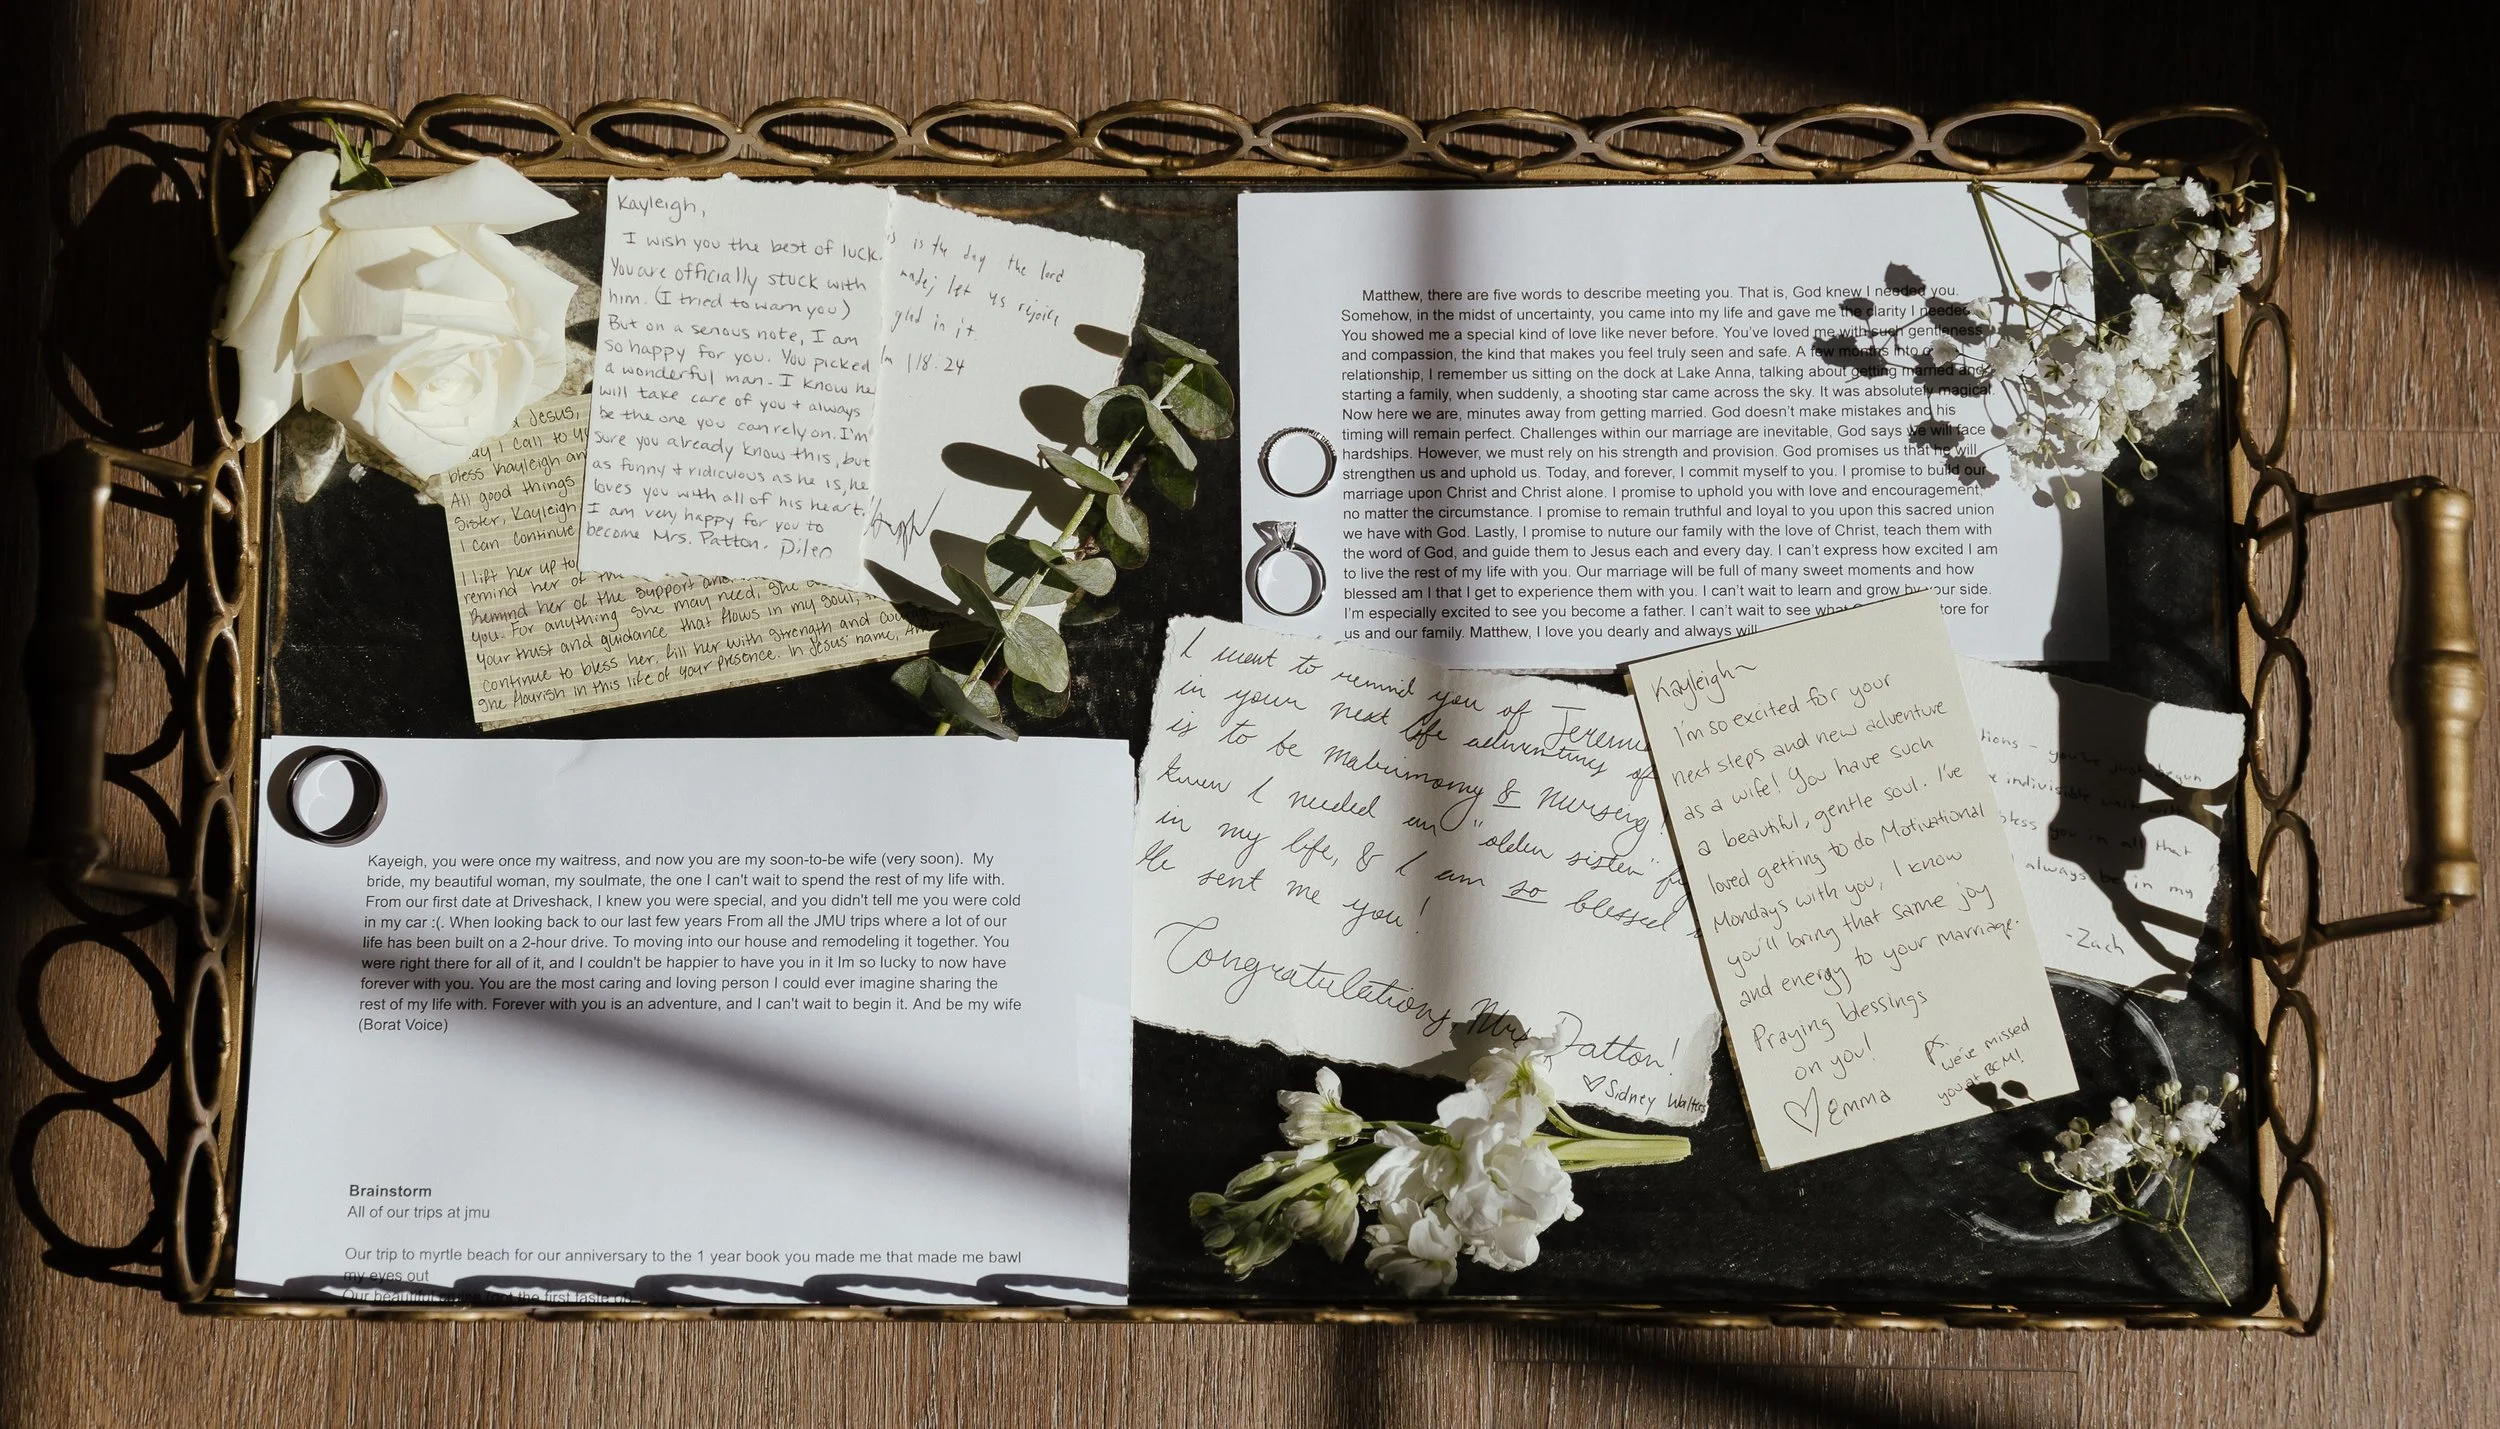 Kayleigh,
I wish you the best of luck.
You are officially stuck with
him. (I tried to warn you)
But on a serious note, I am
so happy for you. You picked
a wonderful man. I know he
will take care of you + always
be the one you can rely on. I'm
sure you already know this, but
as funny + ridiculous as he is, he
loves you with all of his heart.
I am very happy for you to
become Mrs. Patton. Dilen
is is the day the lord
made; let us rejoice
glad in it.
118.24
Jesus,
ay I call to yo
bless Kayleigh an
All good things
Sister, Kayleigh
I can continue
I lift her up to
remind her of the
Remind her of the support and
you. For anything she may need, she
your trust and guidance that flows in my soul,
continue to bless her, fill her with strength and cou
she flourish in this life of your presence. In Jesus' name, Amen
Matthew, there are five words to describe meeting you. That is, God knew I needed you.
Somehow, in the midst of uncertainty, you came into my life and gave me the clarity I needed
You showed me a special kind of love like never before. You've loved me with such gentleness
and compassion, the kind that makes you feel truly seen and safe. A few months into o
relationship, I remember us sitting on the dock at Lake Anna, talking about getting married and
starting a family, when suddenly, a shooting star came across the sky. It was absolutely magical.
Now here we are, minutes away from getting married. God doesn't make mistakes and his
timing will remain perfect. Challenges within our marriage are inevitable, God says we will face
hardships. However, we must rely on his strength and provision. God promises us that he will
strengthen us and uphold us. Today, and forever, I commit myself to you. I promise to build our
marriage upon Christ and Christ alone. I promise to uphold you with love and encouragement,
no matter the circumstance. I promise to remain truthful and loyal to you upon this sacred union
we have with God. Lastly, I promise to nuture our family with the love of Christ, teach them with
the word of God, and guide them to Jesus each and every day. I can't express how excited I am
to live the rest of my life with you. Our marriage will be full of many sweet moments and how
blessed am I that I get to experience them with you. I can't wait to learn and grow by your side.
I'm especially excited to see you become a father. I can't wait to see what tore for
us and our family. Matthew, I love you dearly and always will
Kayeigh, you were once my waitress, and now you are my soon-to-be wife (very soon). My
bride, my beautiful woman, my soulmate, the one I can't wait to spend the rest of my life with.
From our first date at Driveshack, I knew you were special, and you didn't tell me you were cold
in my car :(. When looking back to our last few years From all the JMU trips where a lot of our
life has been built on a 2-hour drive. To moving into our house and remodeling it together. You
were right there for all of it, and I couldn't be happier to have you in it Im so lucky to now have
forever with you. You are the most caring and loving person I could ever imagine sharing the
rest of my life with. Forever with you is an adventure, and I can't wait to begin it. And be my wife
(Borat Voice)
Brainstorm
All of our trips at jmu
Our trip to myrtle beach for our anniversary to the 1 year book you made me that made me bawl
my eyes out
Our beautiful the first taste of
I want to remind you of Jeremi
in your next life adventures of
is to be matrimony & nursing!
knew I needed an "older sister" fi
in my life, & I am so blessed
He sent me you!
Congratulations, Mrs. Patton!
♡ Sidney Walters
Kayleigh~
I'm so excited for your
next steps and new adventure
as a wife! You have such
a beautiful, gentle soul. I've
loved getting to do Motivational
Mondays with you, I know
you'll bring that same joy
and energy to your marriage.
Praying blessings
on you!
♡ Emma
ps.
we've missed
you at BCM!
tions - you've just begun
indivisible unit with
bless you in all that
always be in my
-Zach